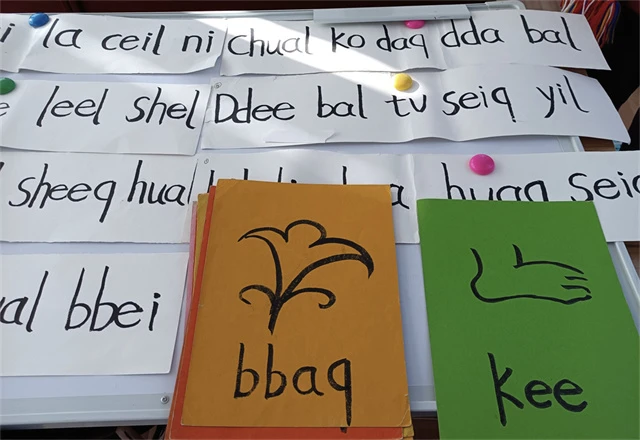 i la ceil ni chual ko daq dda bal
e leel shel Ddee bal tv seiq yil
sheeq hual huaq seiq
al bbei
bbaq
kee